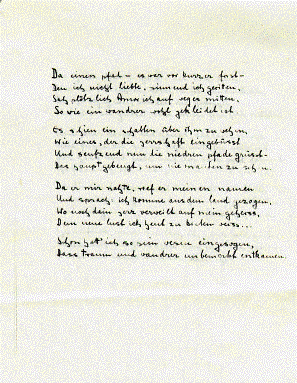 Da einen pfad – es war vor kurzer frist –
Den ich nicht liebte, sinnend ich geritten,
Sah plötzlich Amor ich auf weges mitten,
So wie ein wandrer wohl gekleidet ist.
Es schien ein schatten über ihm zu sein,
Wie einer, der die herrschaft eingebüsst
Und seufzend nun die niedren pfade
Das haupt gebeugt, um nie
Da er mir nahte, rief er meinen namen
Und sprach: ich komme aus dem land gezogen,
Wo noch dein herz verweilt auf mein geheiss.
Dem neue lust ich heut zu bieten weiss...
Schon hatt ich so sein wesen eingesogen,
Dass traum und wandrer unbemerkt entkamen.